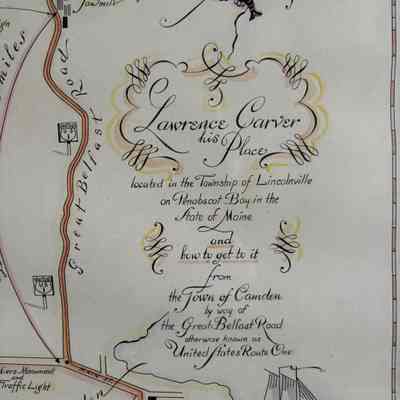 Sawmill
miles
Great Belfast Road
Lawrence Carver
his
Place
located in the Township of Lincolnville
on Penobscot Bay in the
State of Maine
and
how to get to it
from
the Town of Camden
by way of
the Great Belfast Road
otherwise known as
United States Route One
Monument
and
Traffic Light